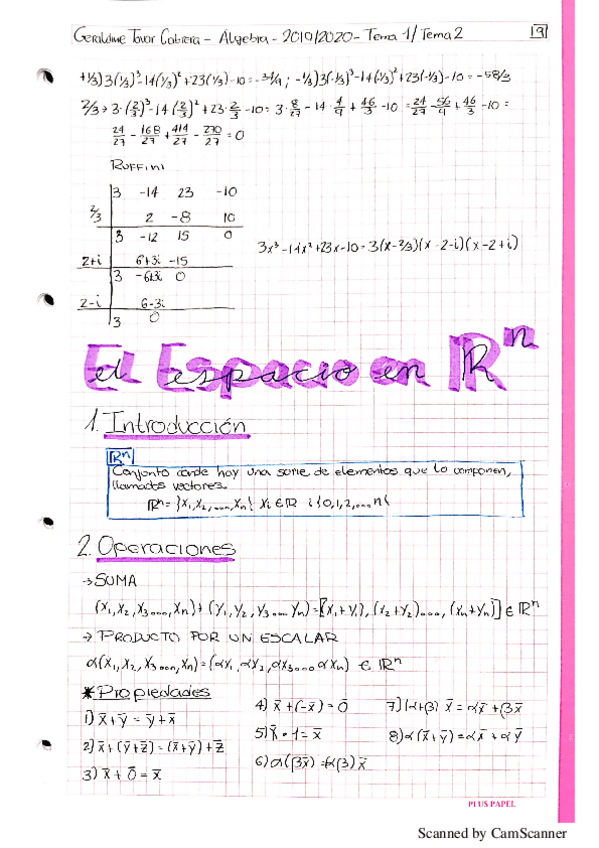 Geraldine Tovar Cabrera - Álgebra - 2019/2020 - Tema 1/Tema 2 19
+1/3) 3(1/3)³-14(1/3)²+23(1/3)-10=-34/9; -1/3) 3(-1/3)³-14(-1/3)²+23(-1/3)-10=-58/3
2/3→ 3·(2/3)³-14(2/3)²+23·2/3-10= 3·8/27-14·4/9+46/3-10 = 24/27-56/9+46/3-10=
24/27-168/27+414/27-270/27=0
RUFFINI
3 -14 23 -10
2/3 2 -8 10
3 -12 15 0
3x³-14x²+23x-10=3(x-2/3)(x-2-i)(x-2+i)
2+i 6+3i -15
3 -6+3i 0
2-i 6-3i
3 0
el Espacio en ℝⁿ
1. Introducción
ℝⁿ
Conjunto donde hay una serie de elementos que lo componen,
llamados vectores.
ℝⁿ= }x₁,x₂,...,xₙ{ xᵢ∈ℝ i{0,1,2,...n{
2. Operaciones
→SUMA
(x₁,x₂,x₃...,xₙ)+(y₁,y₂,y₃...yₙ)=[(x₁+y₁),(x₂+y₂)...,(xₙ+yₙ)]∈ℝⁿ
→ PRODUCTO POR UN ESCALAR
α(x₁,x₂,x₃...,xₙ)=(αx₁,αx₂,αx₃...αxₙ) ∈ ℝⁿ
*Propiedades
1) x̄+ȳ = ȳ+x̄
2) x̄+(ȳ+z̄)=(x̄+ȳ)+z̄
3) x̄+0̄=x̄
4) x̄+(-x̄)=0̄
5) x̄·1=x̄
6) α(βx̄)=(αβ)x̄
7) (α+β)x̄=αx̄+βx̄
8) α(x̄+ȳ)=αx̄+αȳ
PLUS PAPEL
Scanned by CamScanner